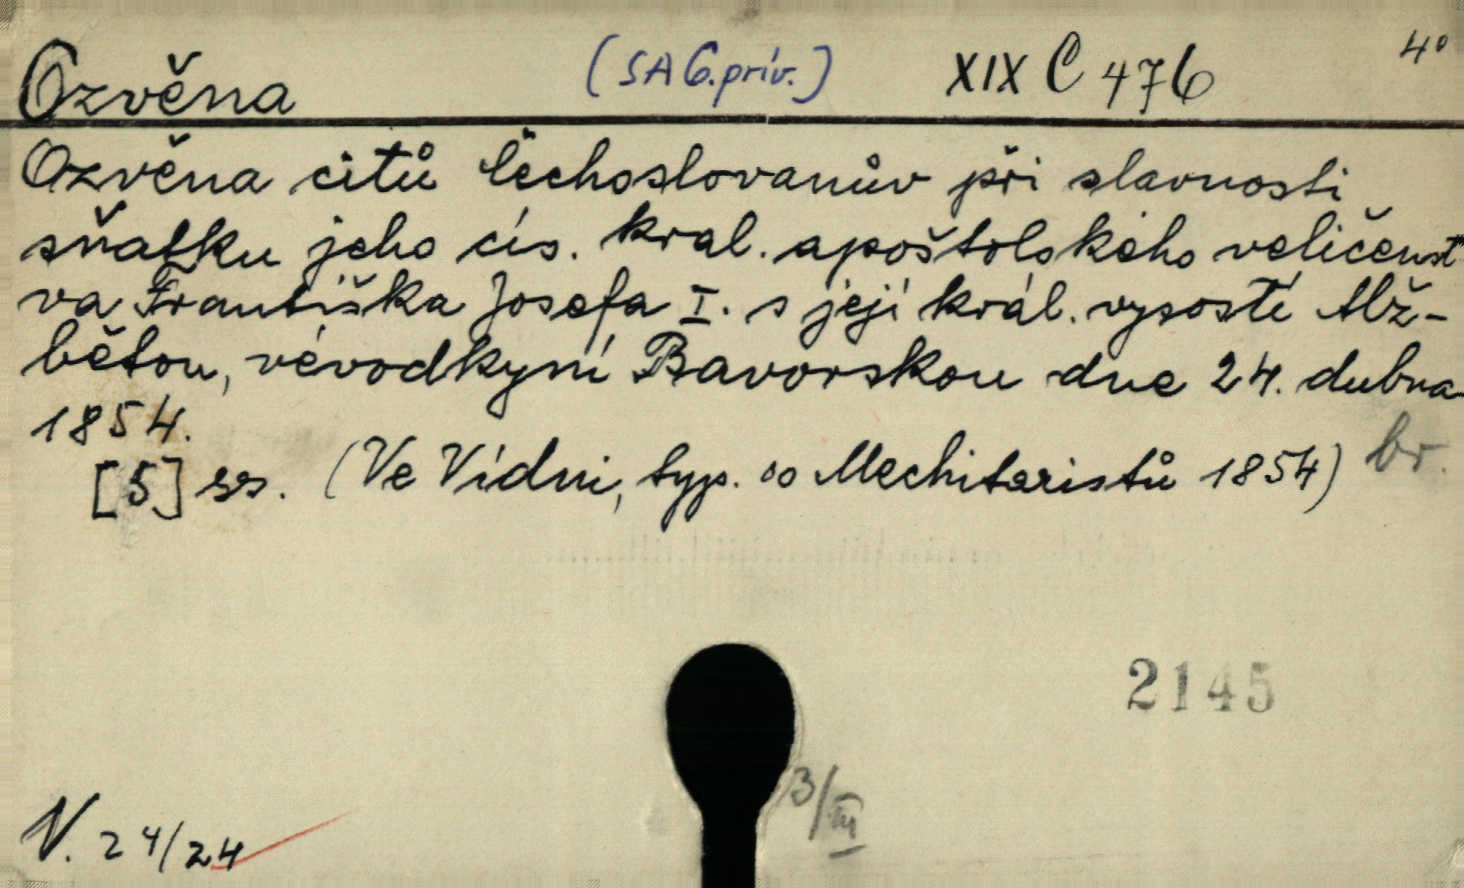 Ozvěna (SA G.priv.) XIX C 476 4°
Ozvěna citů Čechoslovanův při slavnosti
sňatku jeho cís. kral. apoštolského veličenst
va Františka Josefa I. s její král. vysostí Alž-
bětou, vévodkyní Bavorskou dne 24. dubna
1854.
[5] ss. (Ve Vídni, typ. oo Mechitaristů 1854) br.
2145
3/III
N. 24/24